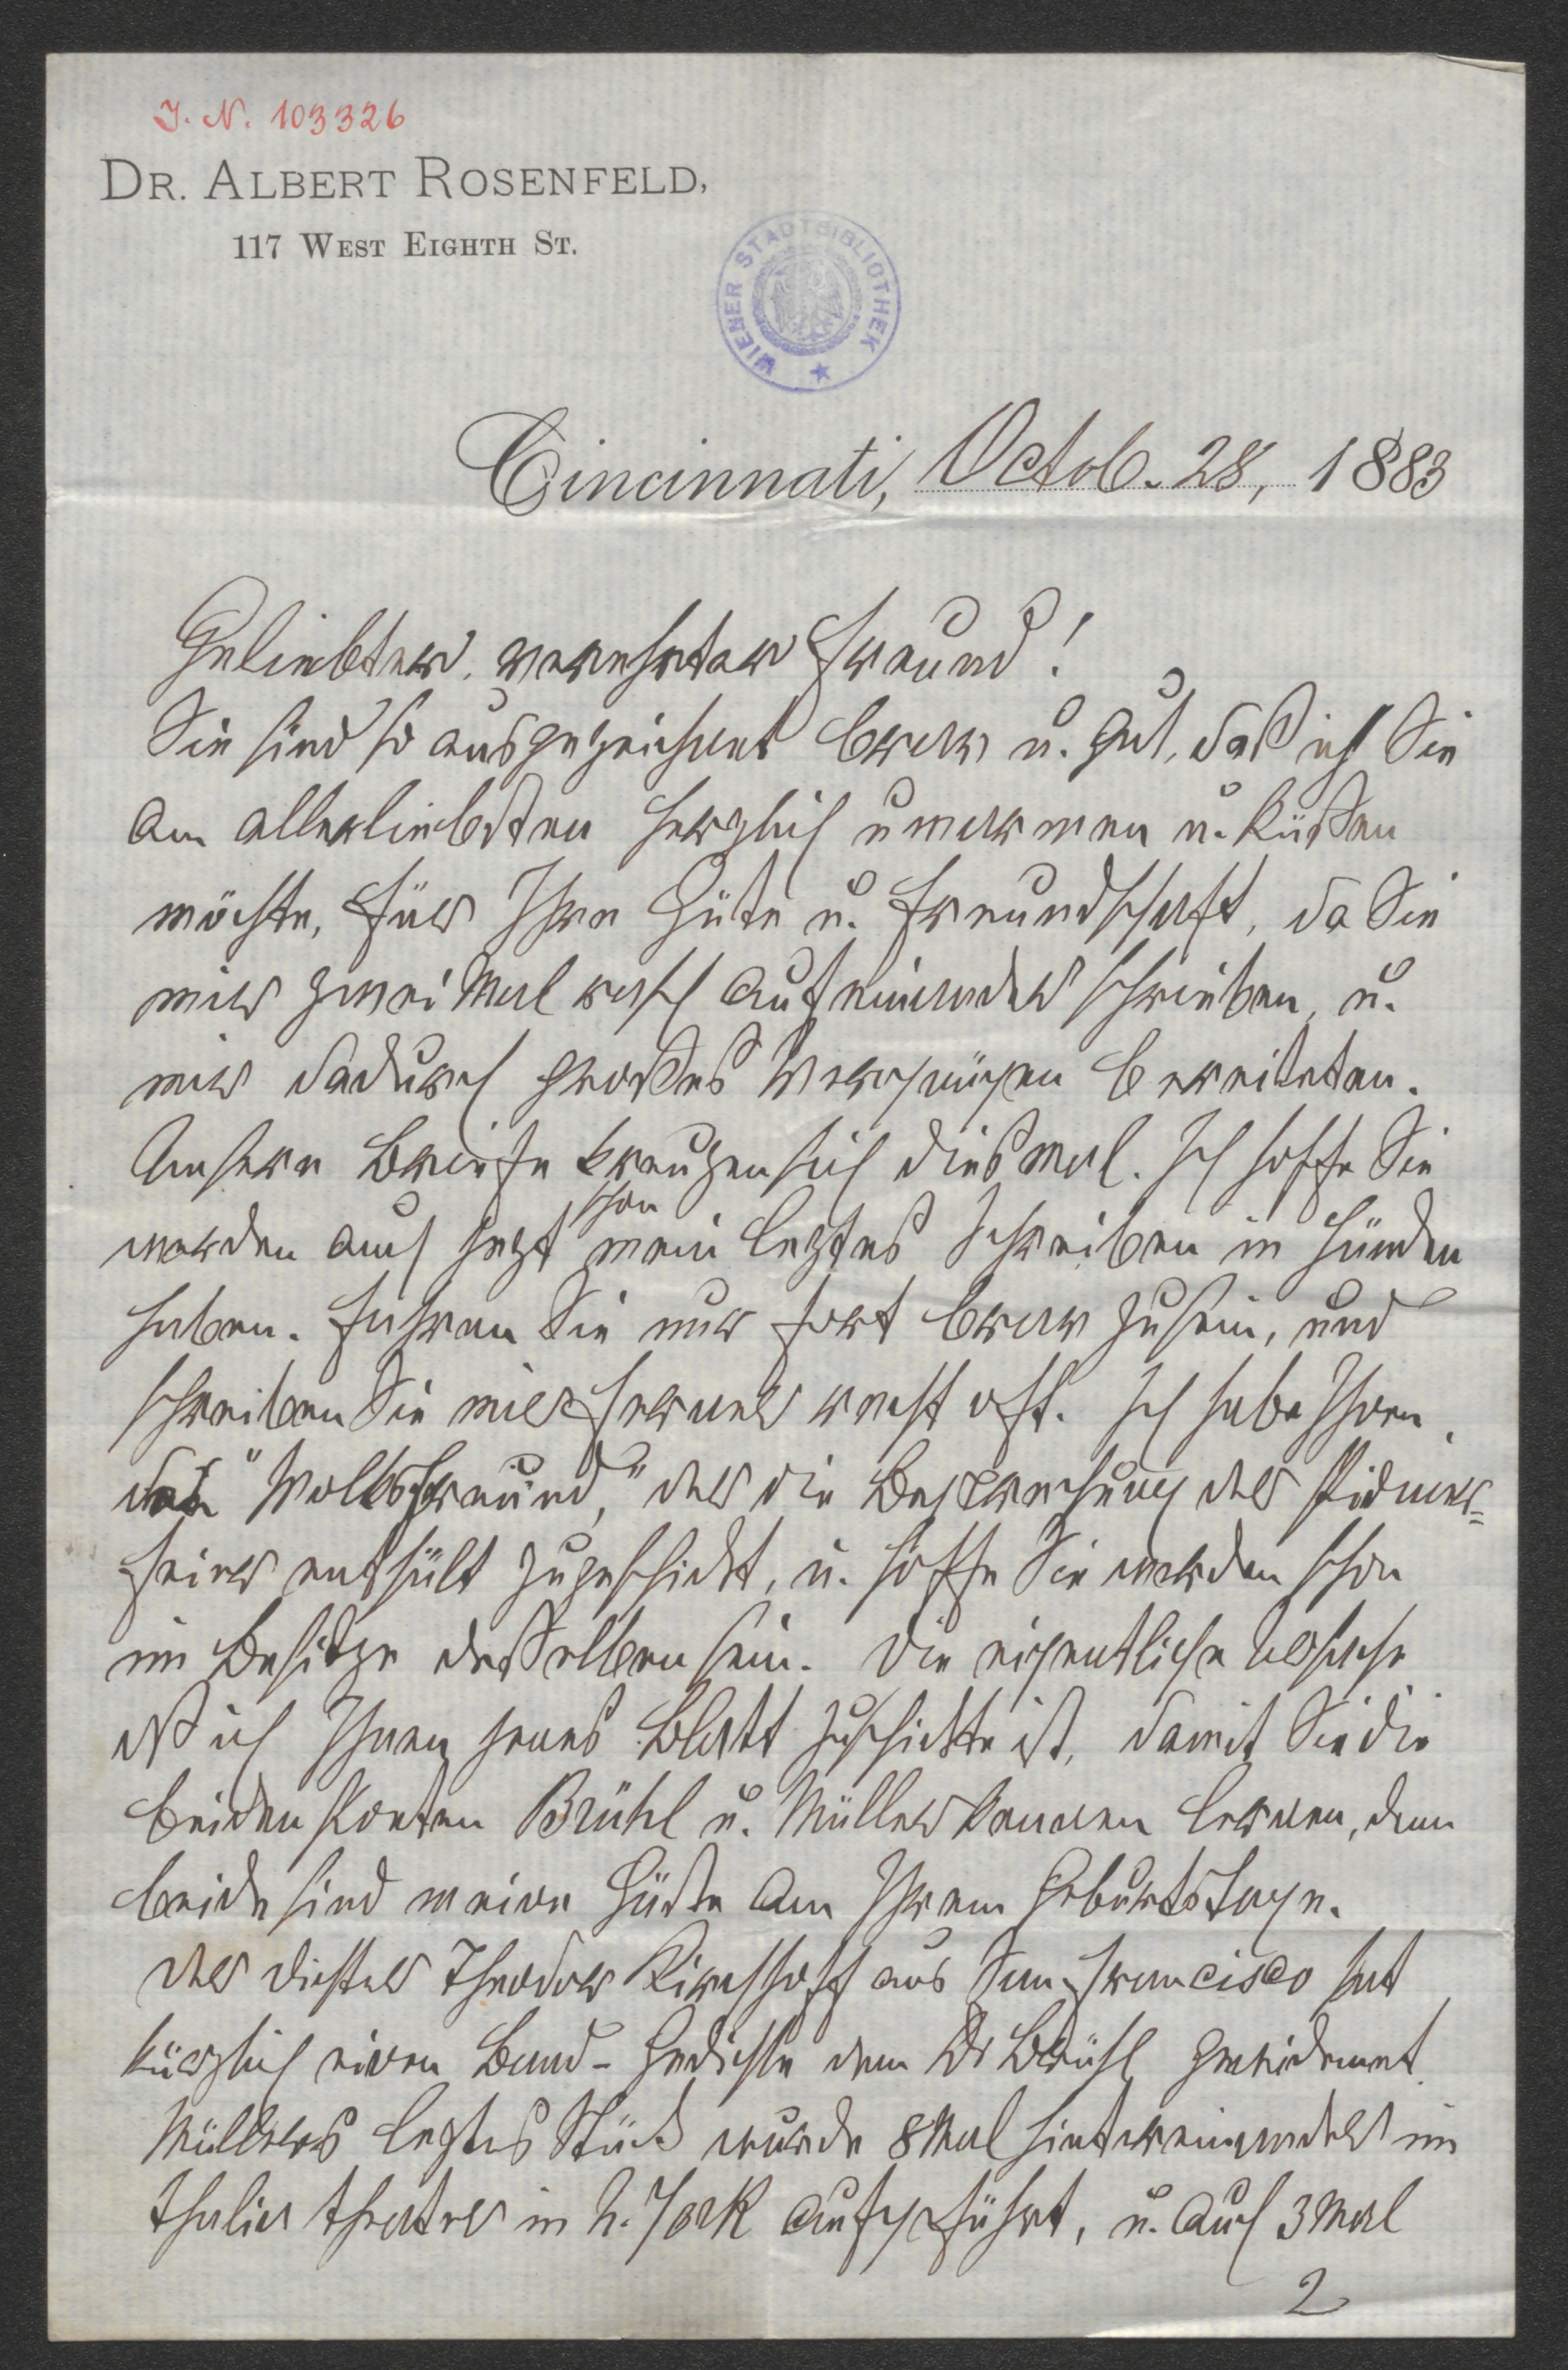 I. N. 103326
DR. ALBERT ROSENFELD,
117 WEST EIGHTH ST.
WIENER STADTBIBLIOTHEK
Cincinnati, Octob. 28, 1883
Geliebter, verehrter Freund!
Sie sind so ausgezeichnet brav u. gut, daß ich Sie
am allerliebsten herzlich umarmen u. küßen
möchte, für Ihre Güte u. Freundschaft, da Sie
mir zwei Mal rasch aufeinander schrieben, u.
mir dadurch großes Vergnügen bereiteten.
Unsere Briefe kreuzen sich dießmal. Ich hoffe Sie
werden auch jezt schon mein leztes Schreiben in Händen
haben. Fahren Sie nur fort brav zu sein, und
schreiben Sie mir ferner recht oft. Ich habe Ihnen
den "Volksfreund," der die Besprechung der Pioneer=
feier enthält zugeschickt, u. hoffe Sie werden schon
im Besitze desselben sein. Die eigentliche Ursache
daß ich Ihnen jenes Blatt zuschickte ist, damit Sie die
beiden Poeten Brühl u. Müller kennen lernen, denn
beide sind meine Gäste am Ihrem Geburtstage.
Der Dichter Theodor Kirchhoff aus San Francisco hat
kürzlich einen Band-Gedichte dem Dr Brühl gewidmet.
Müllers leztes Stück wurde 8 Mal hintereinander im
Thalia Theater in N. York aufgeführt, u. auch 3 Mal
2